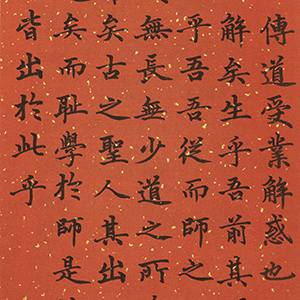 傳道受業解惑也
解矣生乎吾前其
乎吾吾從而師之
無長無少道之所
矣古之聖人其出
矣而耻學於師是
皆出於此乎